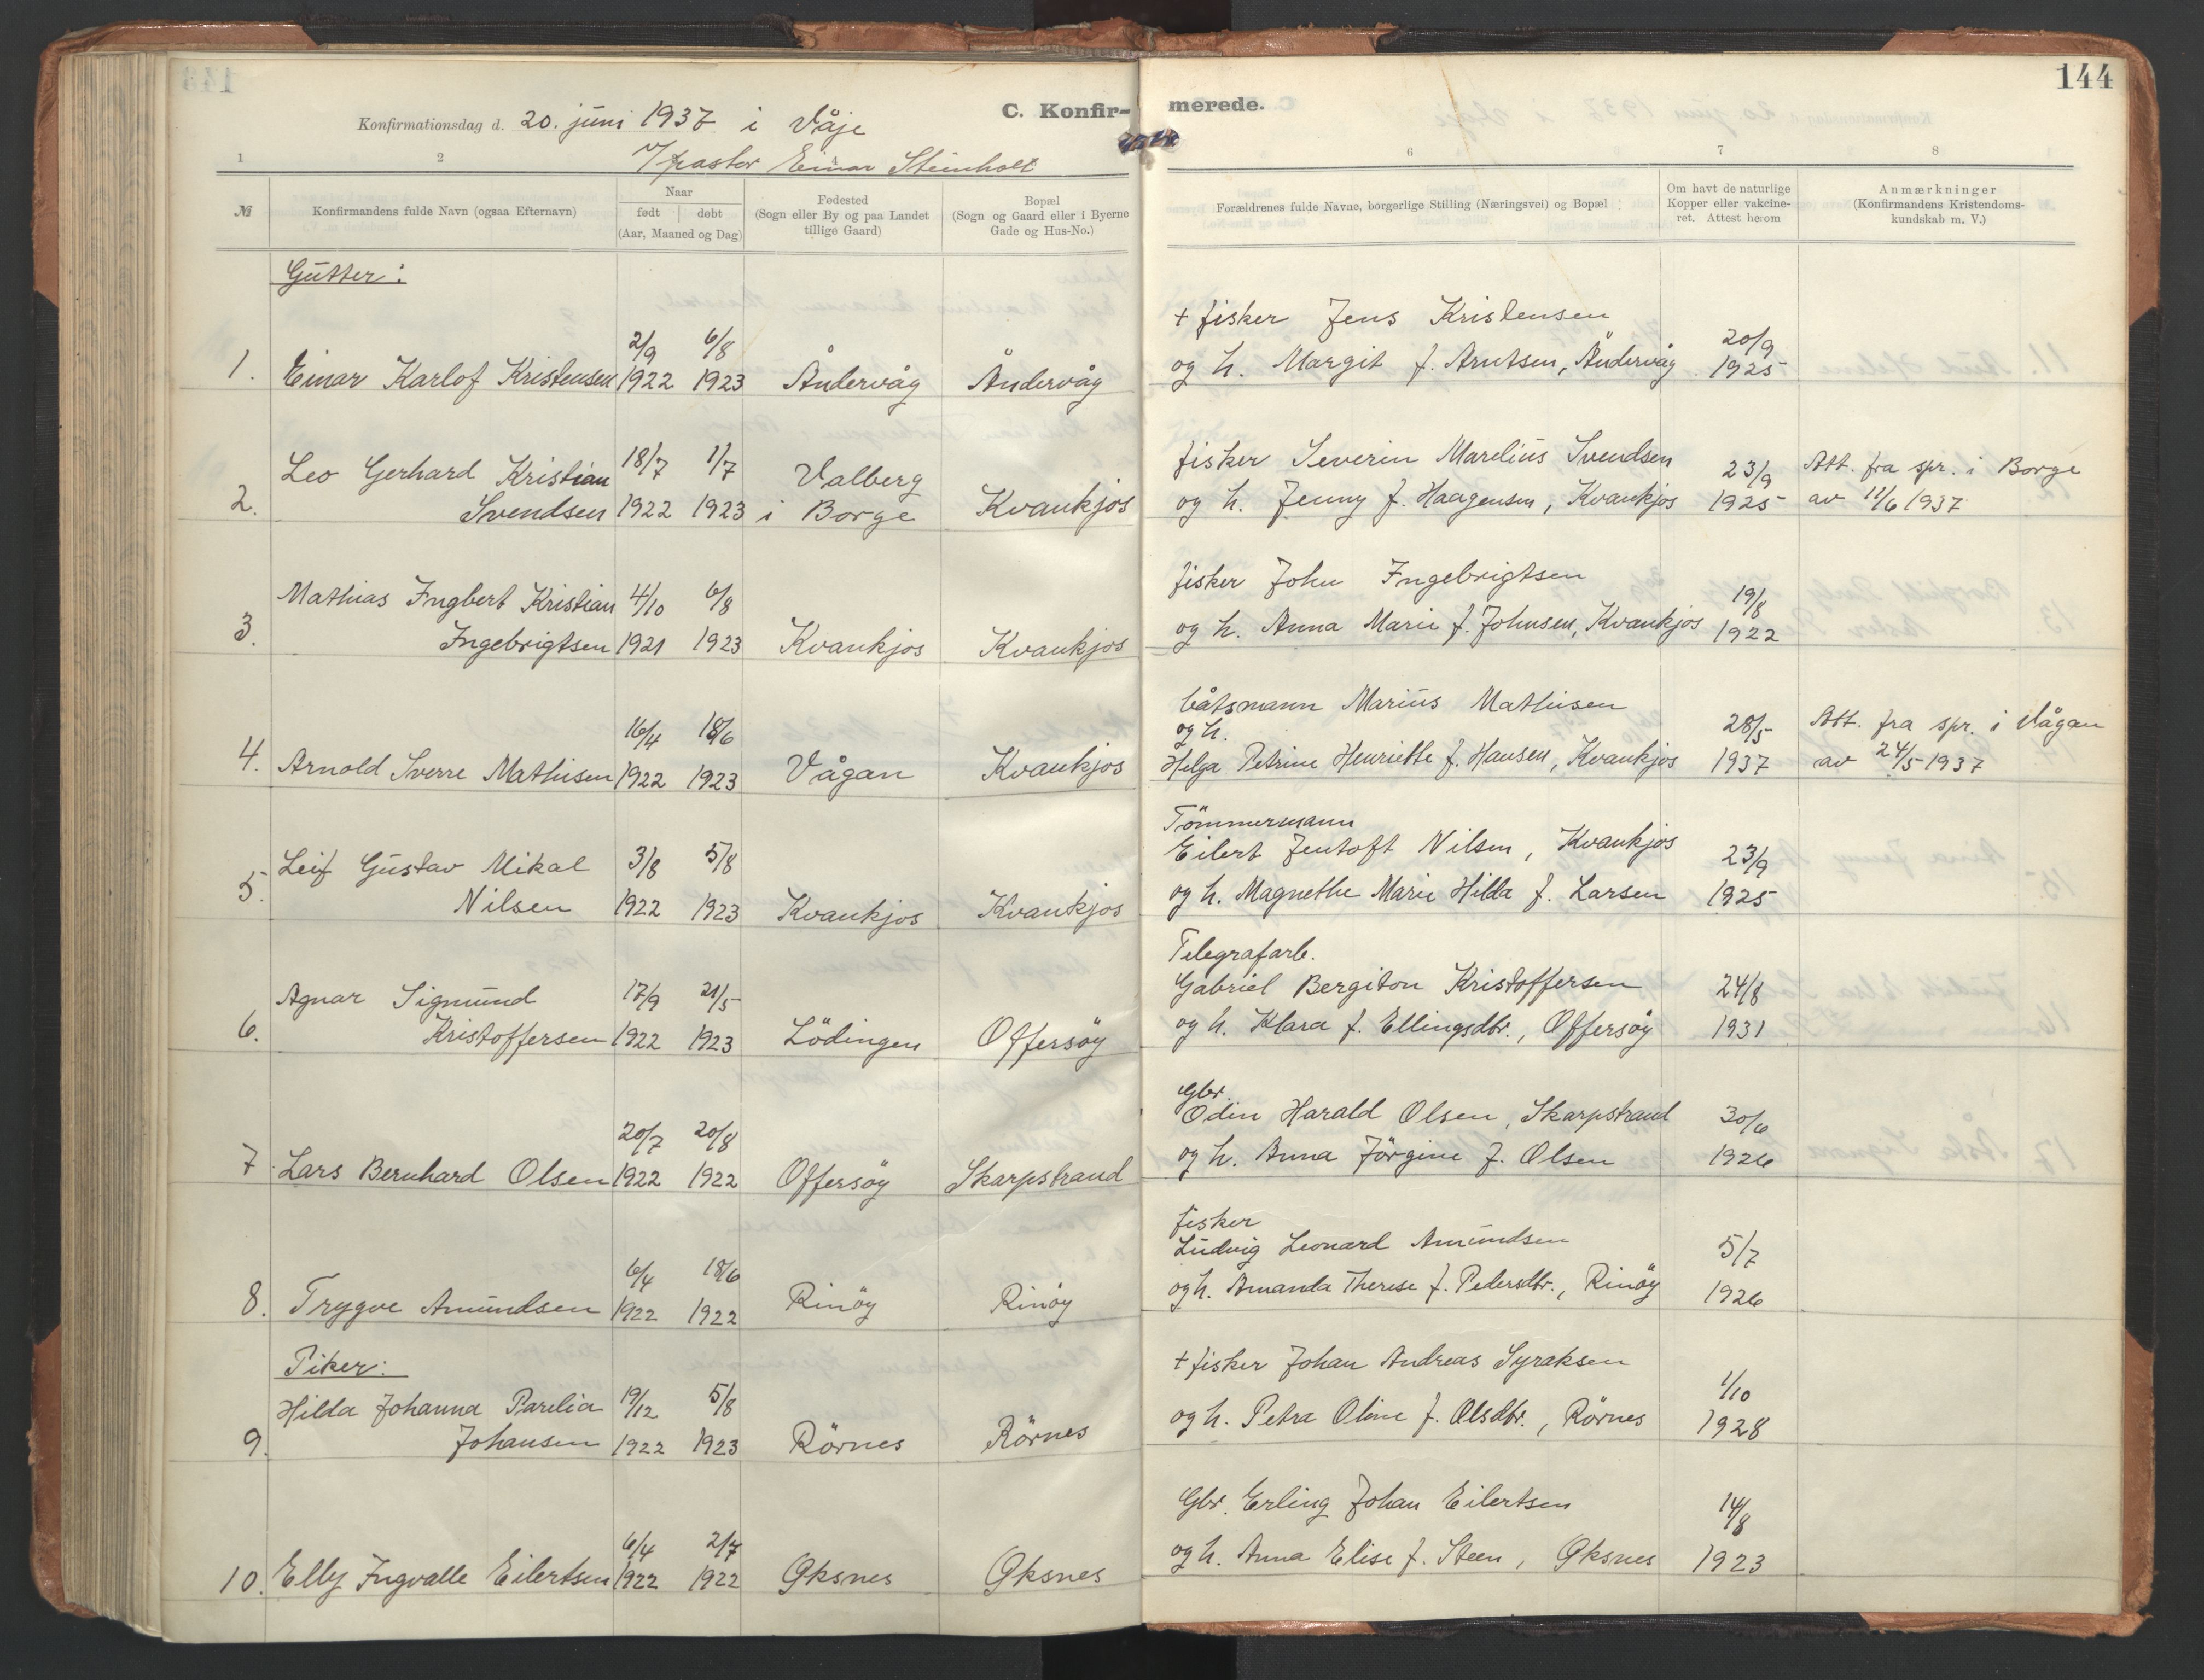 144
Konfirmationsdag d. 20. juni 1937 i Våje
C. Konfirmerede.
v/pastor Einar Steinholt
1 2 4 6 7 8
№
Konfirmandens fulde Navn (ogsaa Efternavn)
Naar
født | døbt
(Aar, Maaned og Dag)
Fødested
(Sogn eller By og paa Landet
tillige Gaard)
Bopæl
(Sogn og Gaard eller i Byerne
Gade og Hus-No.)
Forældrenes fulde Navne, borgerlige Stilling (Næringsvei) og Bopæl
Om havt de naturlige
Kopper eller vakcine-
ret. Attest herom
Anmærkninger
(Konfirmandens Kristendoms-
kundskab m. V.)
Gutter:
2/9 6/8 + fisker Jens Kristensen 20/9
1. Einar Karlof Kristensen 1922 1923 Åndervåg Åndervåg og h. Margit f. Arntsen, Åndervåg 1925
Leo Gerhard Kristian 18/7 1/7 Valberg fisker Severin Marelius Svendsen 23/9 Att. fra spr. i Borge
2. Svendsen 1922 1923 i Borge Kvankjos og h. Jenny f. Haagensen, Kvankjos 1925 av 11/6 1937
Mathias Ingbert Kristian 4/10 6/8 fisker John Ingebrigtsen 19/8
3. Ingebrigtsen 1921 1923 Kvankjos Kvankjos og h. Anna Marie f. Johnsen, Kvankjos 1922
båtsmann Marius Mathisen
16/4 18/6 og h. 28/5 Att. fra spr. i Vågan
4. Arnold Sverre Mathisen 1922 1923 Vågan Kvankjos Helga Petrine Henriette f. Hansen, Kvankjos 1937 av 24/5 1937
Tömmermann
Leif Gustav Mikal 3/8 5/8 Eilert Jentoft Nilsen, Kvankjos 23/9
5. Nilsen 1922 1923 Kvankjos Kvankjos og h. Magnethe Marie Hilda f. Larsen 1925
Telegrafarb.
Agnar Sigmund 17/9 21/5 Gabriel Bergiton Kristoffersen 24/8
6. Kristoffersen 1922 1923 Lödingen Offersöy og h. Klara f. Ellingsdtr., Offersöy 1931
Gbr.
20/7 20/8 Odin Harald Olsen, Skarpstrand 30/6
7. Lars Bernhard Olsen 1922 1922 Offersöy Skarpstrand og h. Anna Jörgine f. Olsen 1926
fisker
6/4 18/6 Ludvig Leonard Amundsen 5/7
8. Trygve Amundsen 1922 1922 Rinöy Rinöy og h. Amanda Therese f. Pedersdtr., Rinöy 1926
Piker:
Hilda Johanna Parelia 19/12 5/8 + fisker Johan Andreas Syraksen 1/10
9. Johansen 1922 1923 Rörnes Rörnes og h. Petra Oline f. Olsdtr., Rörnes 1928
6/4 2/7 Gbr. Erling Johan Eilertsen 14/8
10. Elly Ingvalle Eilertsen 1922 1922 Øksnes Øksnes og h. Anna Elise f. Steen, Øksnes 1923